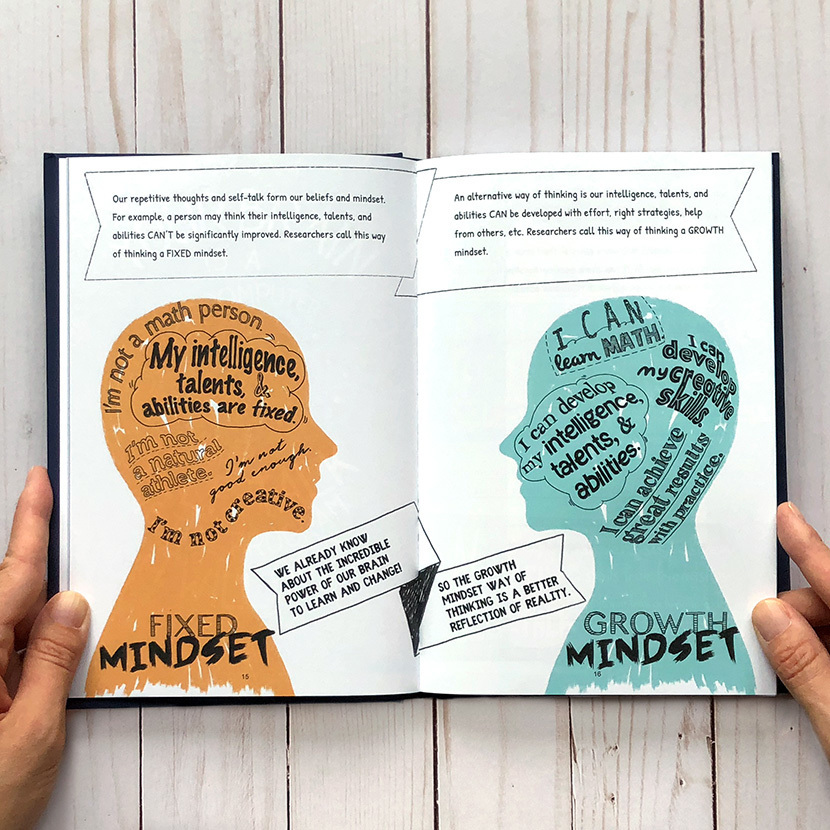 Our repetitive thoughts and self-talk form our beliefs and mindset.
For example, a person may think their intelligence, talents, and
abilities CAN'T be significantly improved. Researchers call this way
of thinking a FIXED mindset.
I'm not a math person.
My intelligence,
talents, &
abilities are fixed.
I'm not
a natural
athlete.
I'm not
good enough.
I'm not creative.
WE ALREADY KNOW
ABOUT THE INCREDIBLE
POWER OF OUR BRAIN
TO LEARN AND CHANGE!
FIXED
MINDSET
15
An alternative way of thinking is our intelligence, talents, and
abilities CAN be developed with effort, right strategies, help
from others, etc. Researchers call this way of thinking a GROWTH
mindset.
I CAN
learn MATH
I can
develop
my creative
skills.
I can develop
my intelligence,
talents, &
abilities.
I can achieve
great results
with practice.
SO THE GROWTH
MINDSET WAY OF
THINKING IS A BETTER
REFLECTION OF REALITY.
GROWTH
MINDSET
16